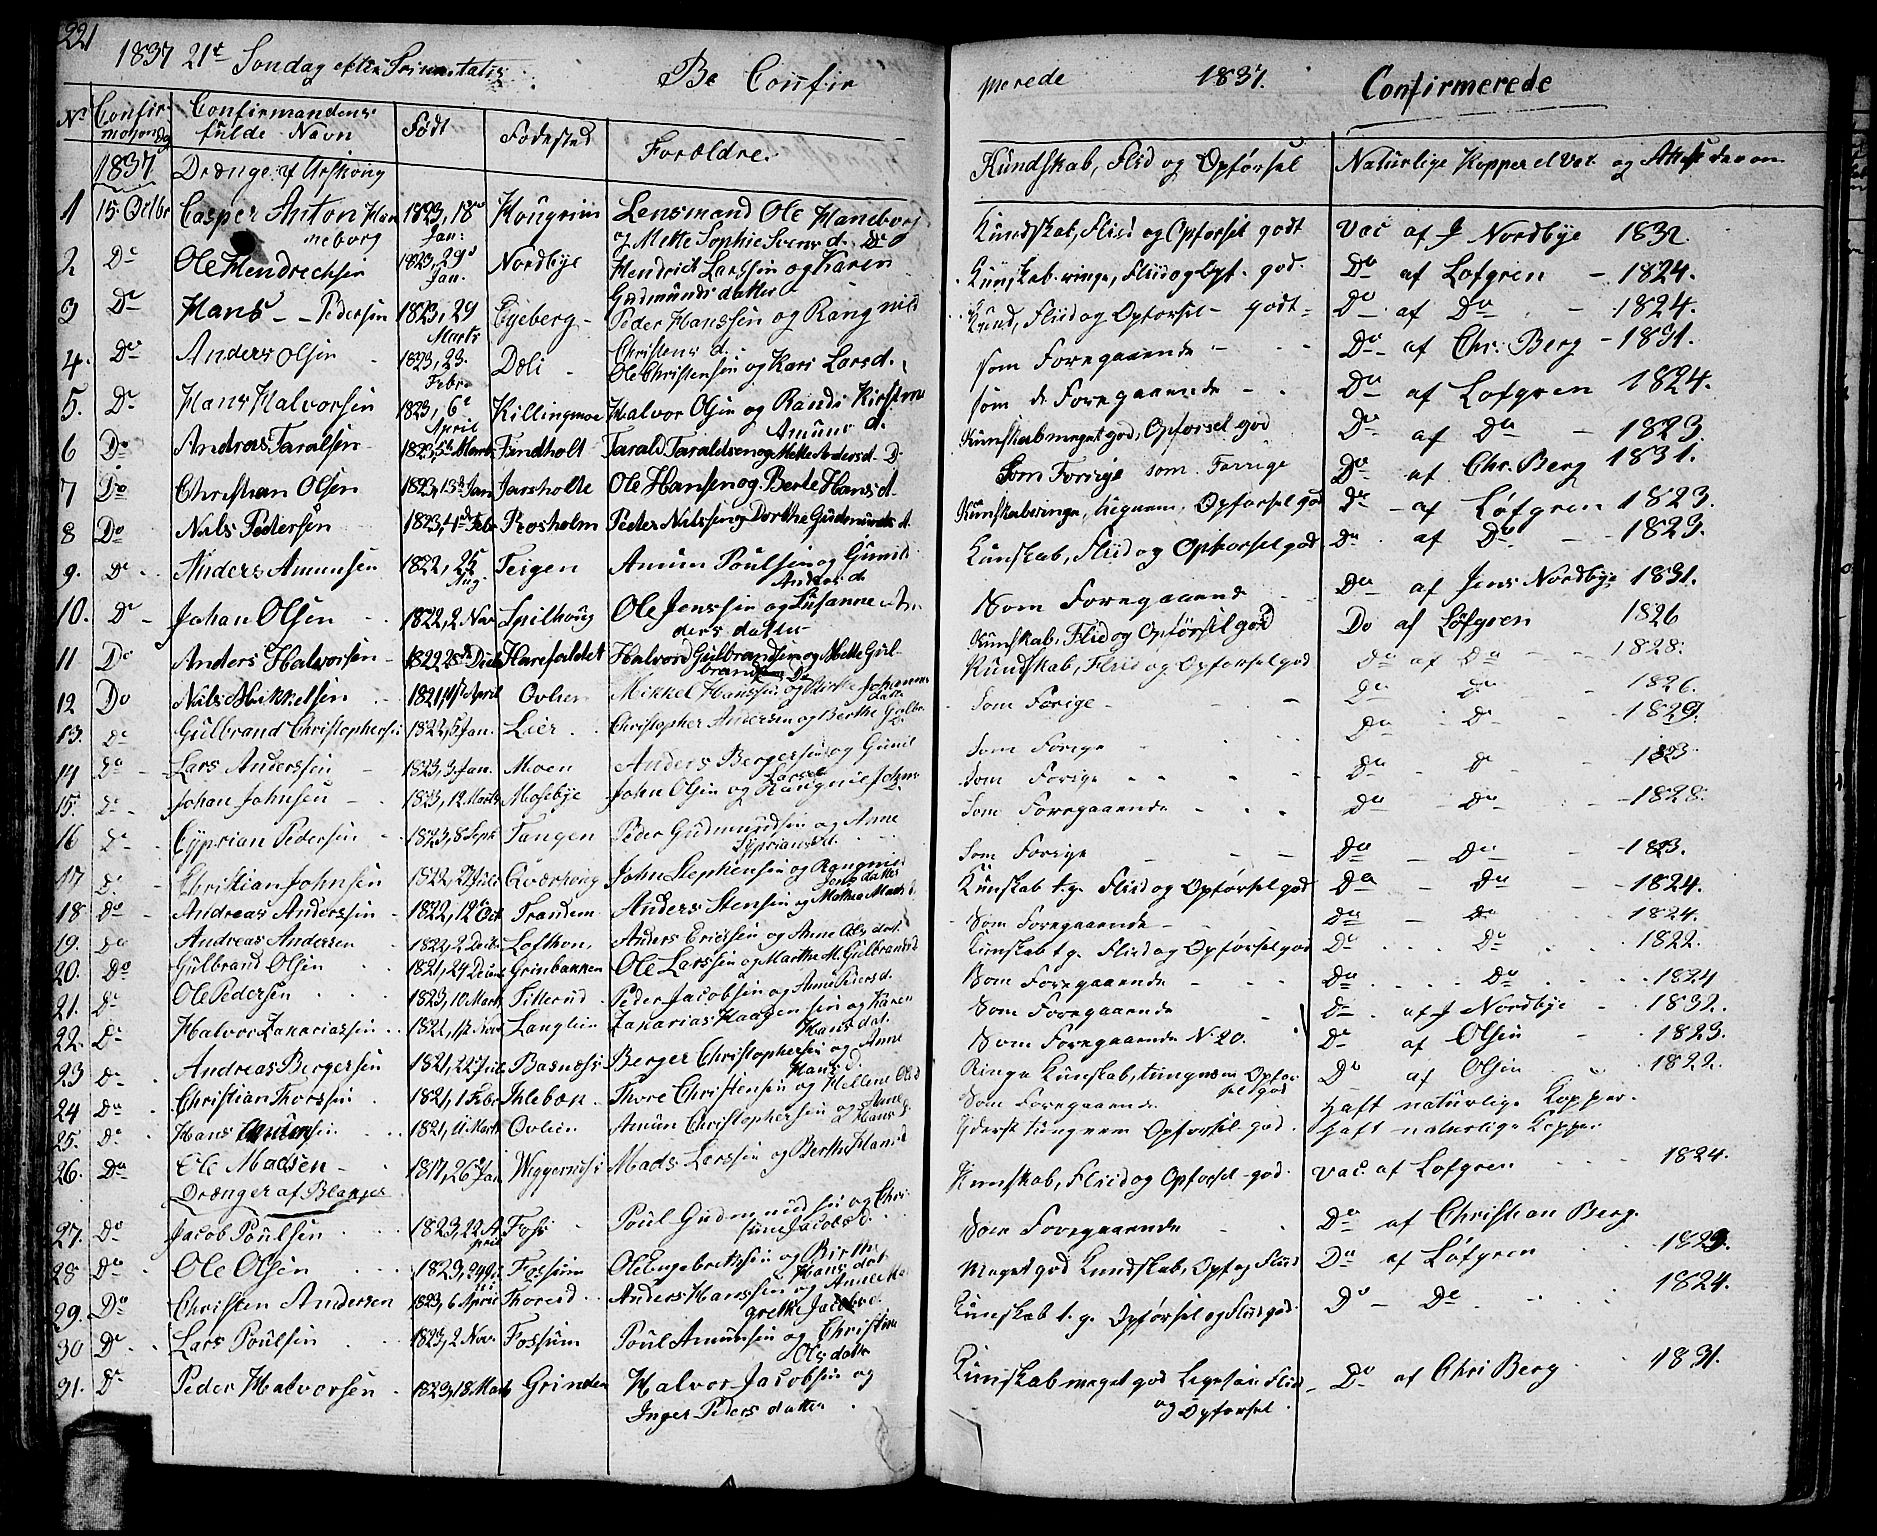 221
1837 21de Søndag efter Trinitatis Be Confir merede 1837. Confirmerede
No Confirmations Dag Confirmandens fulde Navn Født Fødested Forældre Kundskab, Fliid og Opførsel Naturlige Kopper el Vac og Attest derom
1837 Drenge af Urskoug
1 15 Octbr Casper Anton Haneborg 1823, 18de Jan: Lensmand Ole Haneborg og Mette Sophie Svens d. Kundskab, Fliid og Opførsel godt Vac af J Nordbye 1832.
2 Do Ole Hendrechsen 1823, 29de Jan. Nordbye Hendrick Larssen og Karen Gudmunds datter Kunskab ringe, Fliid og Opf. god. Do af Løfgren 1824.
3 Do Hans Pedersen 1823, 29 Marts Egeberg Peder Hanssen og Rangnild Christens d. Kund, Fliid og Opførsel godt Do af Do 1824.
4. Do Anders Olsen 1823, 23. Febr. Dæli Ole Christensen og Kari Larsd. som Foregaaende Do af Chr. Berg 1831.
5. Do Hans Halvorsen 1823, 6te April Killingmoe Halvor Olsen og Randi Kirstine Amuns d. som de Foregaaende Do af Løfgren 1824.
6 Do Andreas Taralsen 1823, 5te Marts Findholt Tarald Taraldsen og Mette Anders d. Kunskab meget god, Opførsel god Do af Do 1823.
7 Do Christian Olsen 1823, 13de Jan Jarsholte Ole Hansen og Berte Hans d. Som Forrige som Forrige Do af Chr. Berg 1831.
8 Do Nils Pedersen 1823, 4de Febr Prosholm Peder Nilssen og Dorthe Gudmunds d. Kunskab ringe, Opførsel god Do af Løfgren 1823.
9. Do Anders Amunsen 1822, 25 Aug. Teigen Amun Poulsen og Gunild Anders d. Kunskab, Fliid og Opførsel god Do af Do 1823.
10. Do Johan Olsen 1822, 2 Nov Spilhoug Ole Jenssen og Susanne Anders datter Som Foregaaende Do af Jens Nordbye 1831.
11 Do Anders Halvorsen 1822 28de Halvord Gulbrandsen og Mette Gulbrands D. Kunskab, Fliid og Opførsel god Do af Løfgren 1826
12 Do Nils Mikkelsen 1821, April Ovlien Mikkel Hanssen og Johannes datt. Kundskab, Fliid og Opførsel god Do af Do 1828.
13. Do Gulbrand Christophersen 1822, 5 Jan. Lier Christopher Andersen og Berthe Gulbr. D. Som Forige Do Do 1826.
14 Do Lars Anderssen 1823, 3 Jan. Moen Anders Bergersen og Gunil Larsd. Som Forige Do Do 1829
15. Do Johan Johnsen 1823, 12 Marts Mosebye John Olsen og Rangnil Som Forige Do Do 1823.
16 Do Cyprian Pedersen 1823, 8 Sept. Tangen Peder Gudmundsen og Anne Syprians d. Som Foregaaende Do Do 1828.
17 Do Christian Johnsen 1822, 27 Juli Qværhoug John Stephensen og Rangnild Jens datter Som Forige Do Do 1823.
18 Do Andreas Anderssen 1822, 12te Oct. Trandem Anders Stensen og Mathea Mads d. Kunskab t.g. Fliid og Opførsel god Do Do 1824.
19. Do Andreas Andersen 1822, 2 Lofthon Anders Ericssen og Anne Ols dat. Som Foregaaende Do Do 1824.
20. Do Gulbrand Olsen 1821, 24 Grinbakken Ole Larssen og Marthe M. Gulbrands d Kunskab t.g. Fliid og Opførsel god Do Do 1822.
21. Do Ole Pedersen 1823, 10 Mart Tillerud Peder Jacobsen og Anne Peders d. Som Foregaaende Do Do 1824
22. Do Halvor Zakariassen 1822, 12 Nov Langlien Zakarias Haagensen og Karen Hans dat. Som Foregaaende Do af J Nordbye 1832.
23 Do Andreas Bergersen 1821, 22 Juli Basnæss Berger Christophersen og Anne Hans d. Som Foregaaende N. 20. Do af Olsen 1823.
24 Do Christian Thorssen 1821, 1 Febr Ihlebæk Thore Christensen og Hellene Ols d Ringe Kunskab, tungnem Opførsel god Do af Olsen 1822.
25. Do Hans Amunsen 1821, 11 Mart Ovlien Amun Christophersen og Anne Hans d. Som Foregaaende Haft naturlige Kopper.
26. Do Ole Madsen 1817, 26de Jan Mads Larssen og Berthe Hans d Yderst tungnem Opførsel god. Haft naturlige Kopper
Drænger af Blakjer
27. Do Jacob Poulsen 1823, 22 April Foss Poul Gudmundsen og Christine Jacobs d. Kunskab, Fliid og Opførsel god. Vac. af Løfgren 1824.
28 Do Ole Olsen 1823, Fossum Ole Engebrethsen og Birthe Hans dat Som Foregaaende Do af Christian Berg.
29. Do Christen Andersen 1823, 6 April Thorerd Anders Hanssen og Anne Margrethe Jacobs d. Meget god Kundskab, Opf og Fliid Do af Løfgren 1823.
30 Do Lars Poulsen 1823, 2 Nov. Fossum Poul Amunsen og Christine Ols datter Kunskab t.g. Opførsel og Fliid god. Do Do 1824.
31. Do Peder Halvorsen 1823, 18 Marts Grinder Halvor Jacobsen og Inger Peders datter Kunskab meget god Ligesaa Fliid og Opførsel. Do af Chr: Berg 1831.